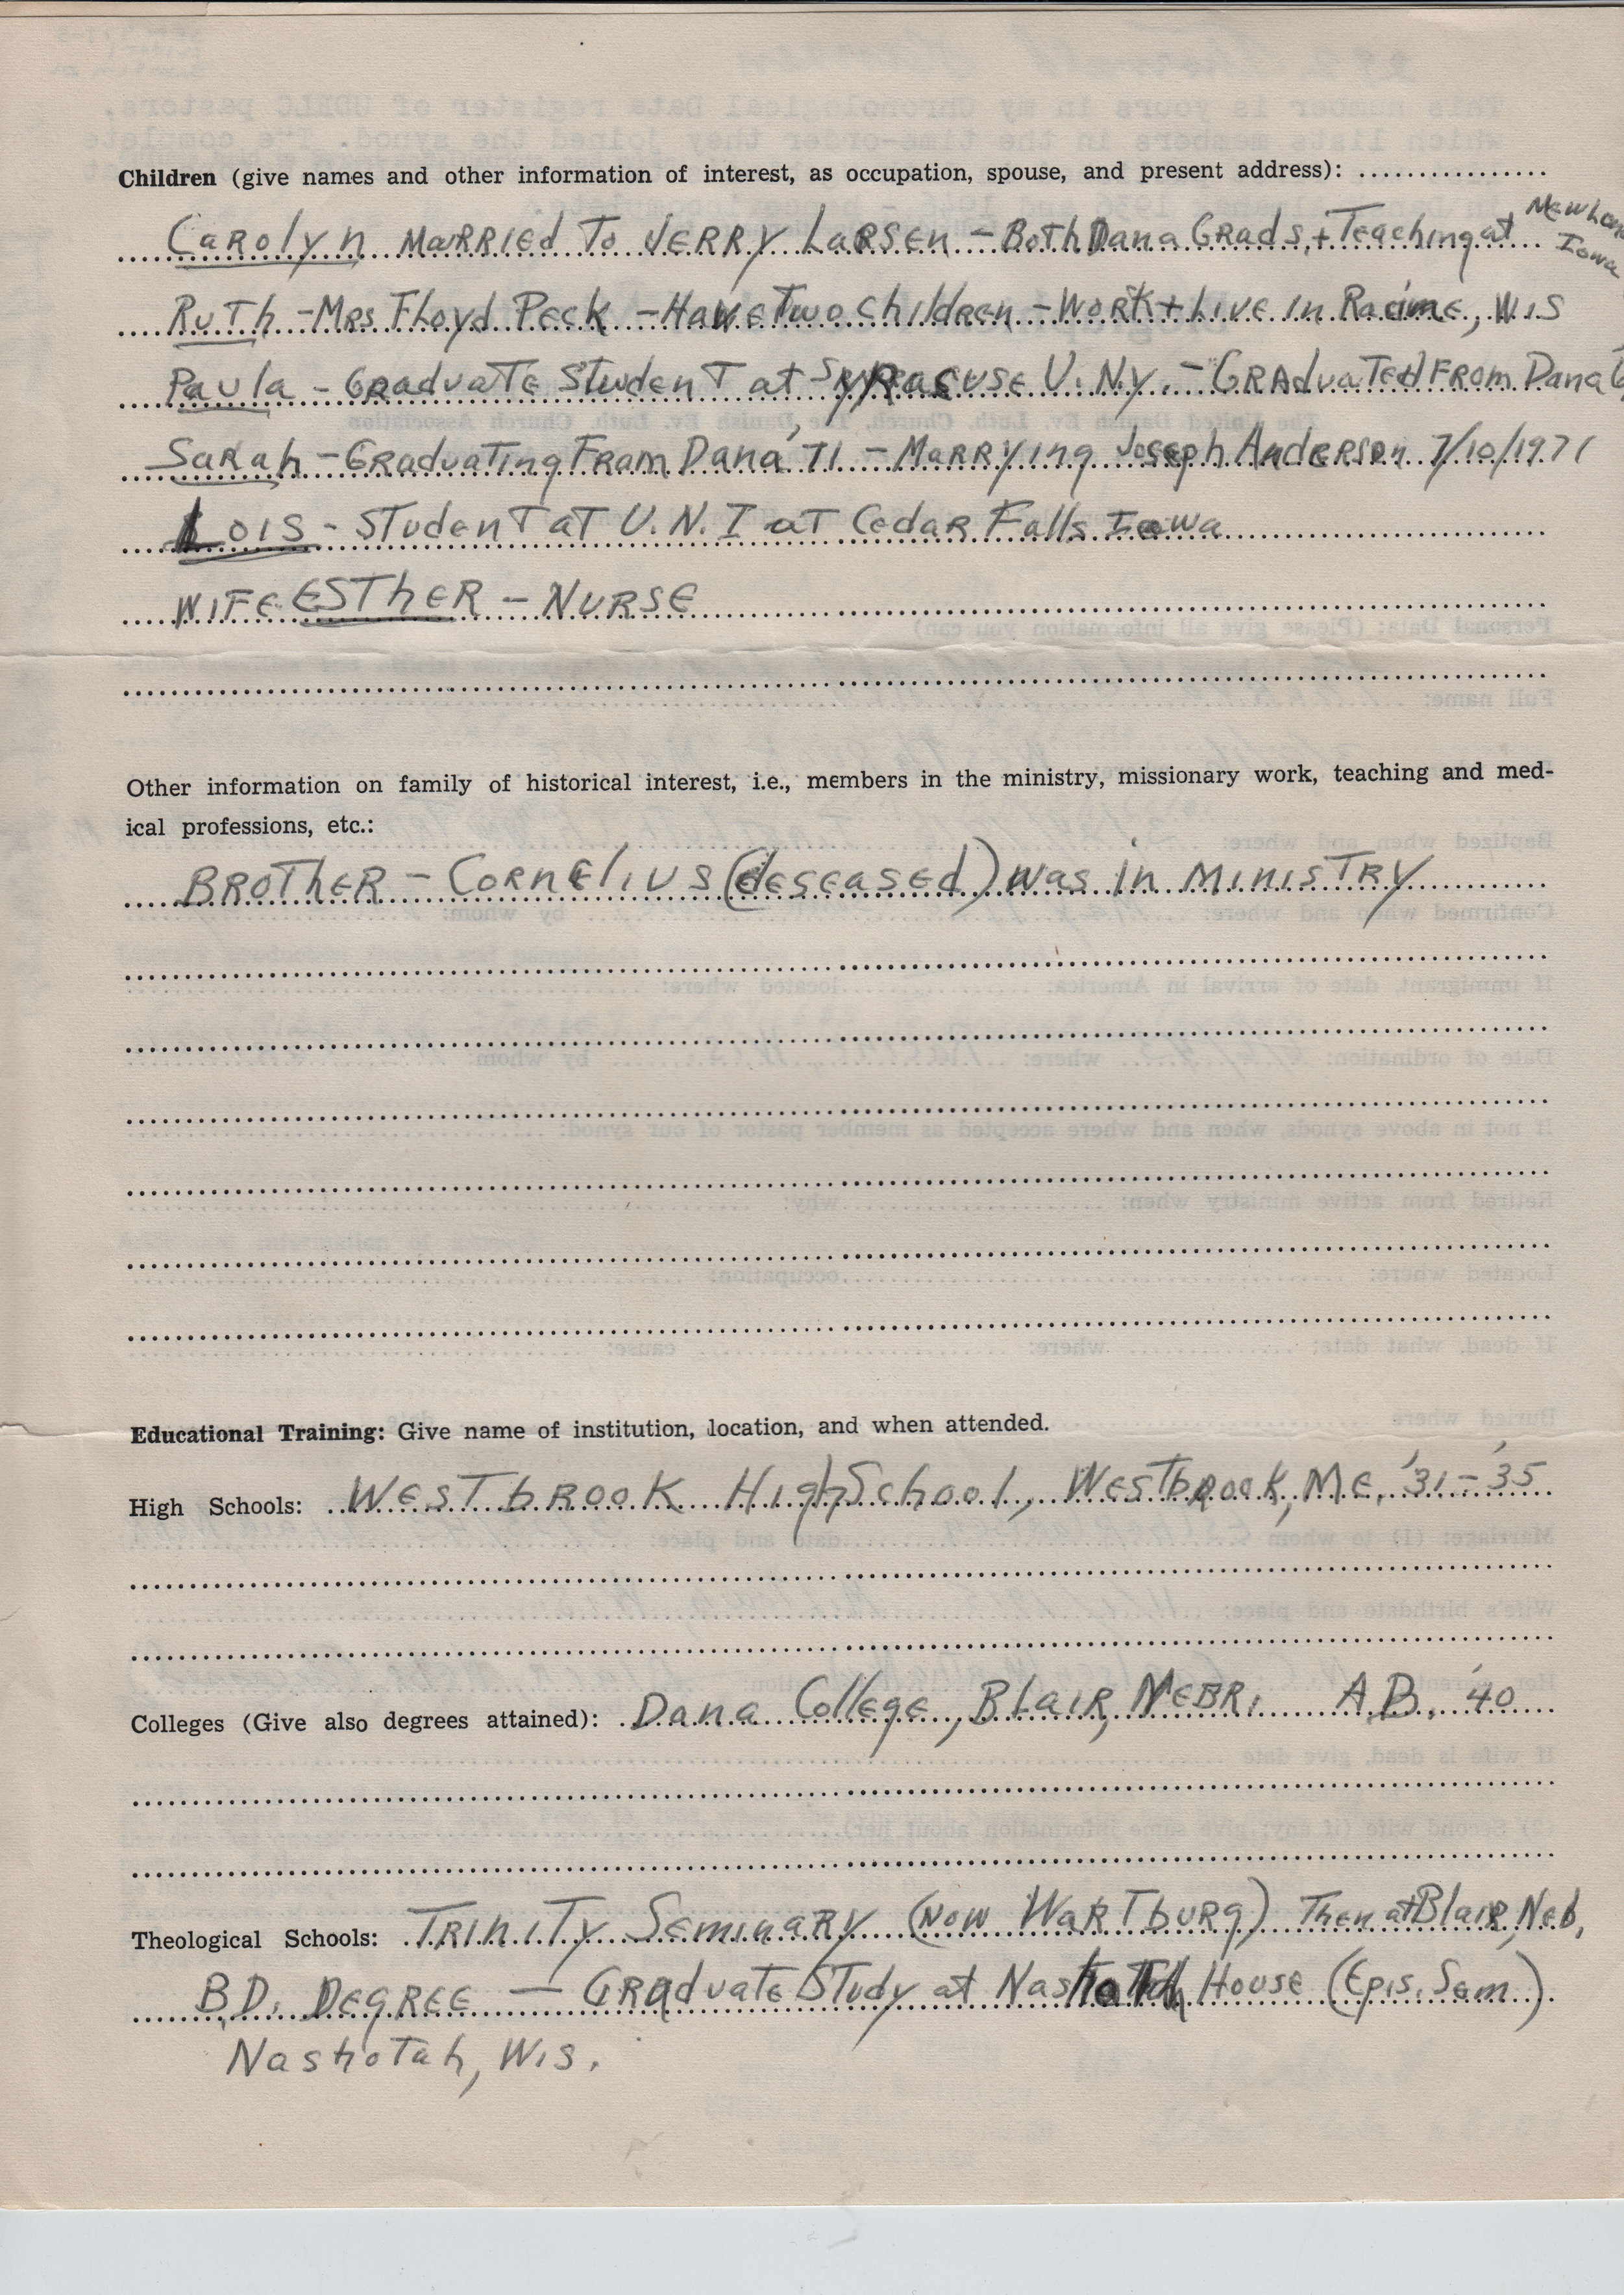 Children (give names and other information of interest, as occupation, spouse, and present address):
Carolyn Married To Jerry Larsen - Both Dana Grads, + Teaching at New
Iowa
Ruth - Mrs Floyd Peck - Have Two Children - Work + Live in Racine, Wis
Paula - Graduate Student at Syracuse U. N.Y. - Graduated From Dana
Sarah - Graduating From Dana '71 - Marrying Joseph Anderson 7/10/1971
Lois - Student at U.N.I at Cedar Falls Iowa
Wife Esther - Nurse
Other information on family of historical interest, i.e., members in the ministry, missionary work, teaching and med-
ical professions, etc.:
Brother - Cornelius (deseased) was in Ministry
Educational Training: Give name of institution, location, and when attended.
High Schools: Westbrook High School, Westbrook, Me, '31-'35
Colleges (Give also degrees attained): Dana College, Blair, Nebr. A.B. '40
Theological Schools: Trinity Seminary (Now Wartburg) Then at Blair, Neb,
B.D. Degree - Graduate Study at Nashotah House (Epis. Sem.)
Nashotah, Wis.